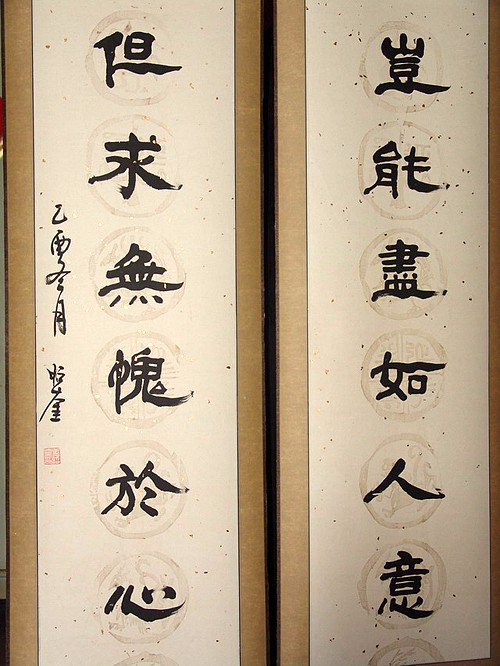 豈能盡如人意
但求無愧於心
乙酉冬月